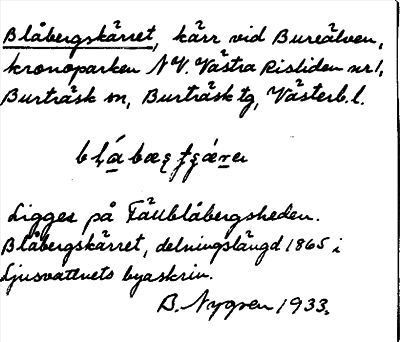 Blåbergskärret, kärr vid Bureälven,
kronoparken NV. Västra Risliden nr 1,
Burträsk sn, Burträsk tg, Västerb. l.
Ligger på Fällblåbergsheden.
Blåbergskärret, delningslängd 1865 i
Ljusvattnets byaskrin.
B. Nygren 1933.